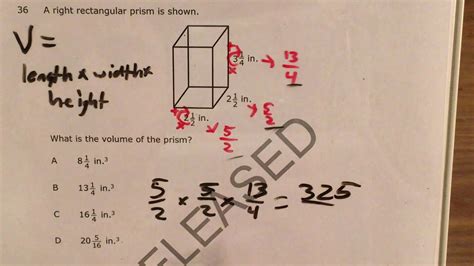 36 A right rectangular prism is shown.
V =
length x width x
height
3 1/4 in. → 13/4
2 1/2 in. → 5/2
2 1/2 in. → 5/2
What is the volume of the prism?
A 8 1/4 in.³
B 13 1/4 in.³
C 16 1/4 in.³
D 20 5/16 in.³
5/2 x 5/2 x 13/4 = 325
RELEASED